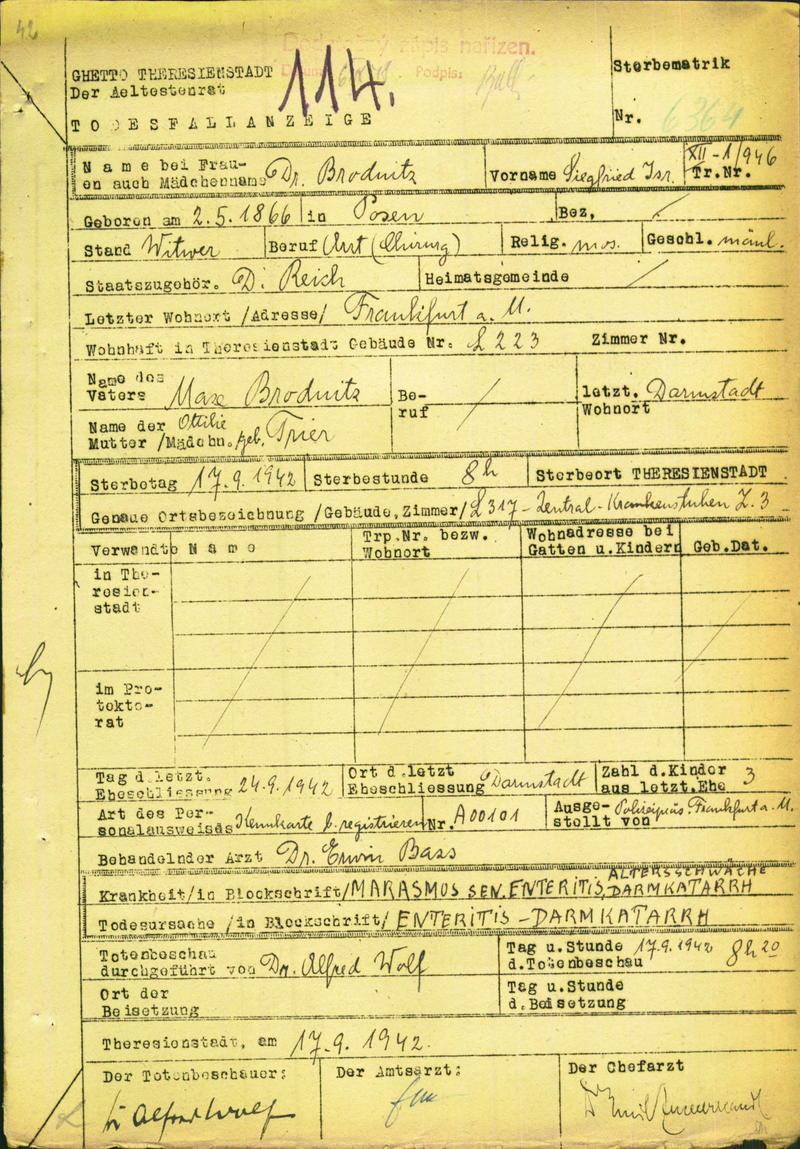 42
Dodatečný zápis nařízen.
Podpis:
GHETTO THERESIENSTADT
Der Aeltestenrat
114.
Sterbematrik
TODESFALLANZEIGE
Nr. 6364
Name bei Frau-
en auch Mädchenname Dr. Brodnitz Vorname Siegfried Isr. XII-1/946
Tr.Nr.
Geboren am 2.5.1866 in Posen Bez. /
Stand Witwer Beruf Arzt (Chirurg) Relig. mos. Geschl. männl.
Staatszugehör. D. Reich Heimatsgemeinde /
Letzter Wohnort /Adresse/ Frankfurt a. M.
Wohnhaft in Theresienstadt Gebäude Nr. L 223 Zimmer Nr.
Name des
Vaters Max Brodnitz Be-
ruf / letzt. Darmstadt
Wohnort
Name der Ottilie
Mutter /Mädchn. geb. Trier
Sterbetag 17.9.1942 Sterbestunde 8h Sterbeort THERESIENSTADT
Genaue Ortsbezeichnung /Gebäude, Zimmer/ L 317 - Zentral-Krankenstuben Z. 3
Verwandte Name Trp.Nr. bezw.
Wohnort Wohnadresse bei
Gatten u.Kindern Geb.Dat.
in The-
resien-
stadt
im Pro-
tekto-
rat
Tag d.letzt.
Eheschliessung 24.9.1942 Ort d.letzt
Eheschliessung Darmstadt Zahl d.Kinder
aus letzt.Ehe 3
Art des Per-
sonalausweises Kennkarte Nr. A00101 Ausge-
stellt von Polizeipräs. Frankfurt a. M.
Behandelnder Arzt Dr. Erwin Bass
ALTERSSCHWÄCHE
Krankheit/in Blockschrift/ MARASMOS SEN. ENTERITIS, DARMKATARRH
Todesursache /in Blockschrift/ ENTERITIS - DARMKATARRH
Totenbeschau
durchgeführt von Dr. Alfred Wolf Tag u.Stunde 17.9.1942 8h20
d.Totenbeschau
Ort der
Beisetzung Tag u.Stunde
d.Beisetzung
Theresienstadt, am 17.9.1942.
Der Totenbeschauer: Der Amtsarzt: Der Chefarzt
Dr Alfred Wolf